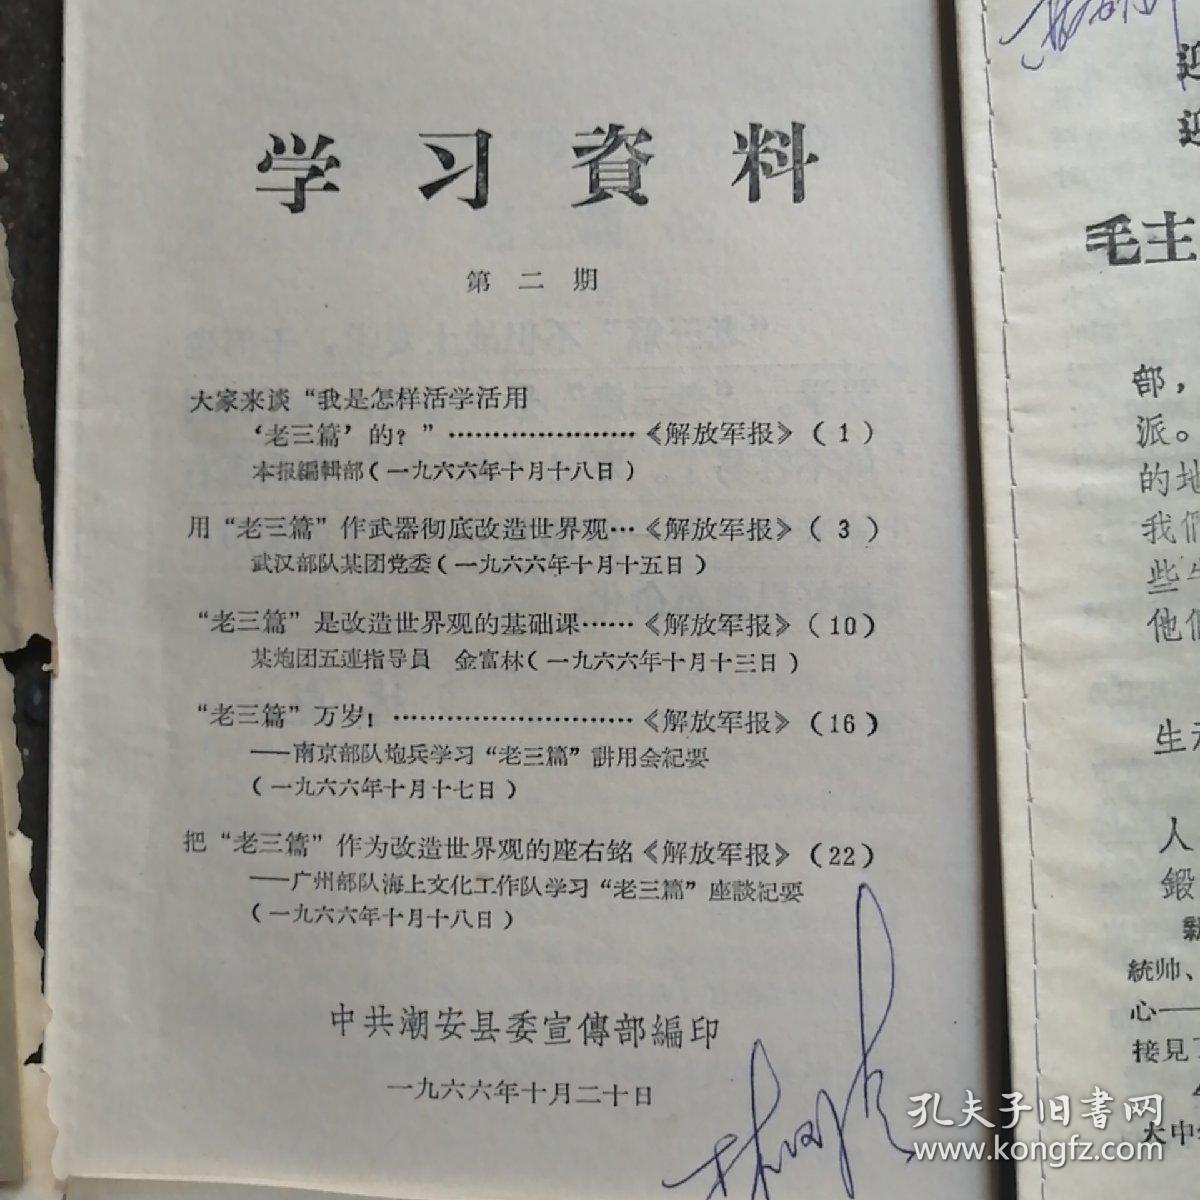 学习資料
第二期
大家来谈“我是怎样活学活用
‘老三篇’的？”……………………《解放军报》(1)
本报編輯部(一九六六年十月十八日)
用“老三篇”作武器彻底改造世界观…《解放军报》(3)
武汉部队某团党委(一九六六年十月十五日)
“老三篇”是改造世界观的基础课……《解放军报》(10)
某炮团五連指导員 金富林(一九六六年十月十三日)
“老三篇”万岁！………………………《解放军报》(16)
——南京部队炮兵学习“老三篇”講用会紀要
(一九六六年十月十七日)
把“老三篇”作为改造世界观的座右铭《解放军报》(22)
——广州部队海上文化工作队学习“老三篇”座談紀要
(一九六六年十月十八日)
中共潮安县委宣傳部編印
一九六六年十月二十日
迎
迎
毛主
部，
派。
的地
我們
些
他们
生
人
鍛
統帅、
心——
接見
大中
孔夫子旧书网
www.kongfz.com